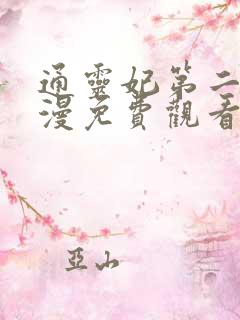 通靈妃第二
漫免費觀看
亞山